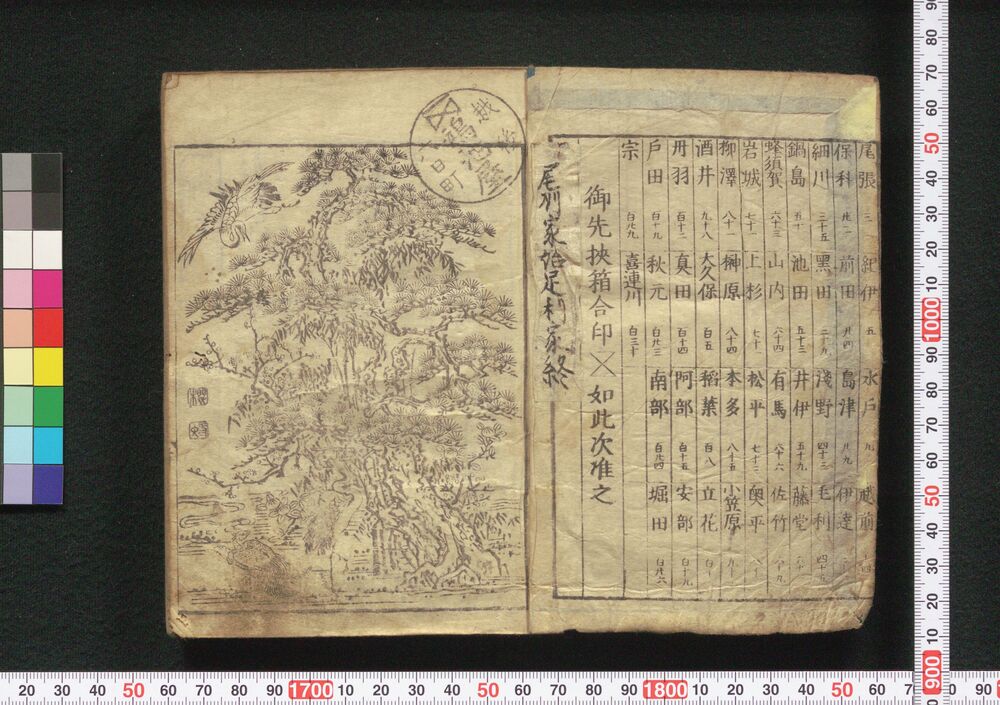 尾張 三 紀伊 五 水戸 九 越前
保科 前田 島津 伊達
細川 三十五 黒田 二十九 浅野 四十三 毛利 四十五
鍋島 五十 池田 五十三 井伊 五十九 藤堂 六十
蜂須賀 六十三 山内 六十四 有馬 六十六 佐竹 六十九
岩城 七十一 上杉 七十 松平 七十三 奥平
柳澤 八十一 榊原 八十四 本多 八十五 小笠原 九十
酒井 九十八 大久保 百五 稲葉 百八 立花
丹羽 百十二 真田 百十四 阿部 百十五 安部 百十九
戸田 百十九 秋元 百廿三 南部 百廿四 堀田 百廿六
宗 百廿九 喜連川 百三十
御先挾箱合印㐅如此次准之
尾刕家始足利家終